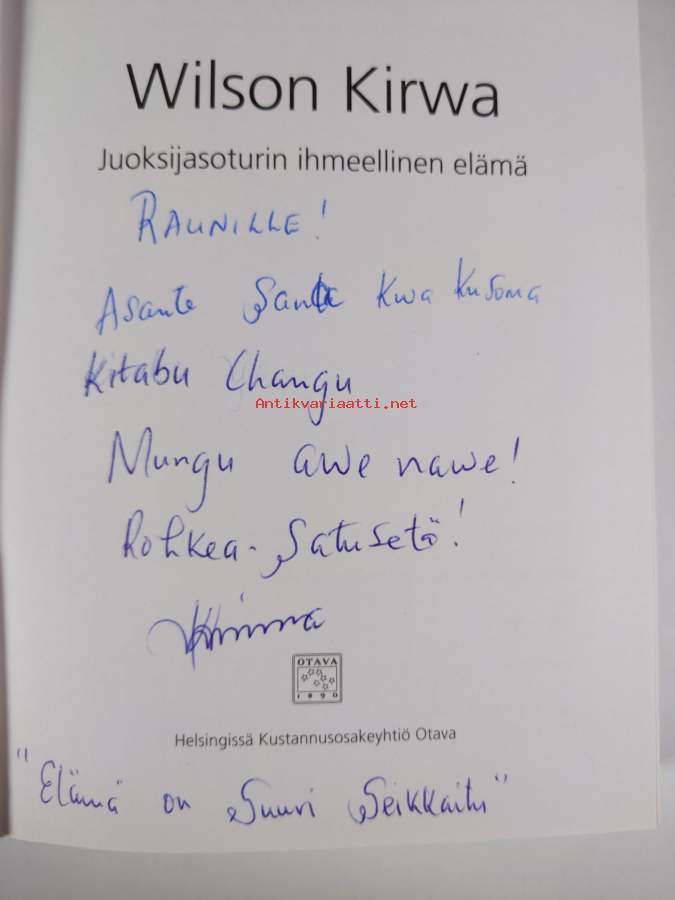 Wilson Kirwa
Juoksijasoturin ihmeellinen elämä
RAUNILLE!
Asante Sana Kwa Kusoma
Kitabu Changu
Antikvariaatti.net
Mungu awe nawe!
Rohkea-Satusetä!
OTAVA
1890
Helsingissä Kustannusosakeyhtiö Otava
"Elämä on Suuri Seikkailu"